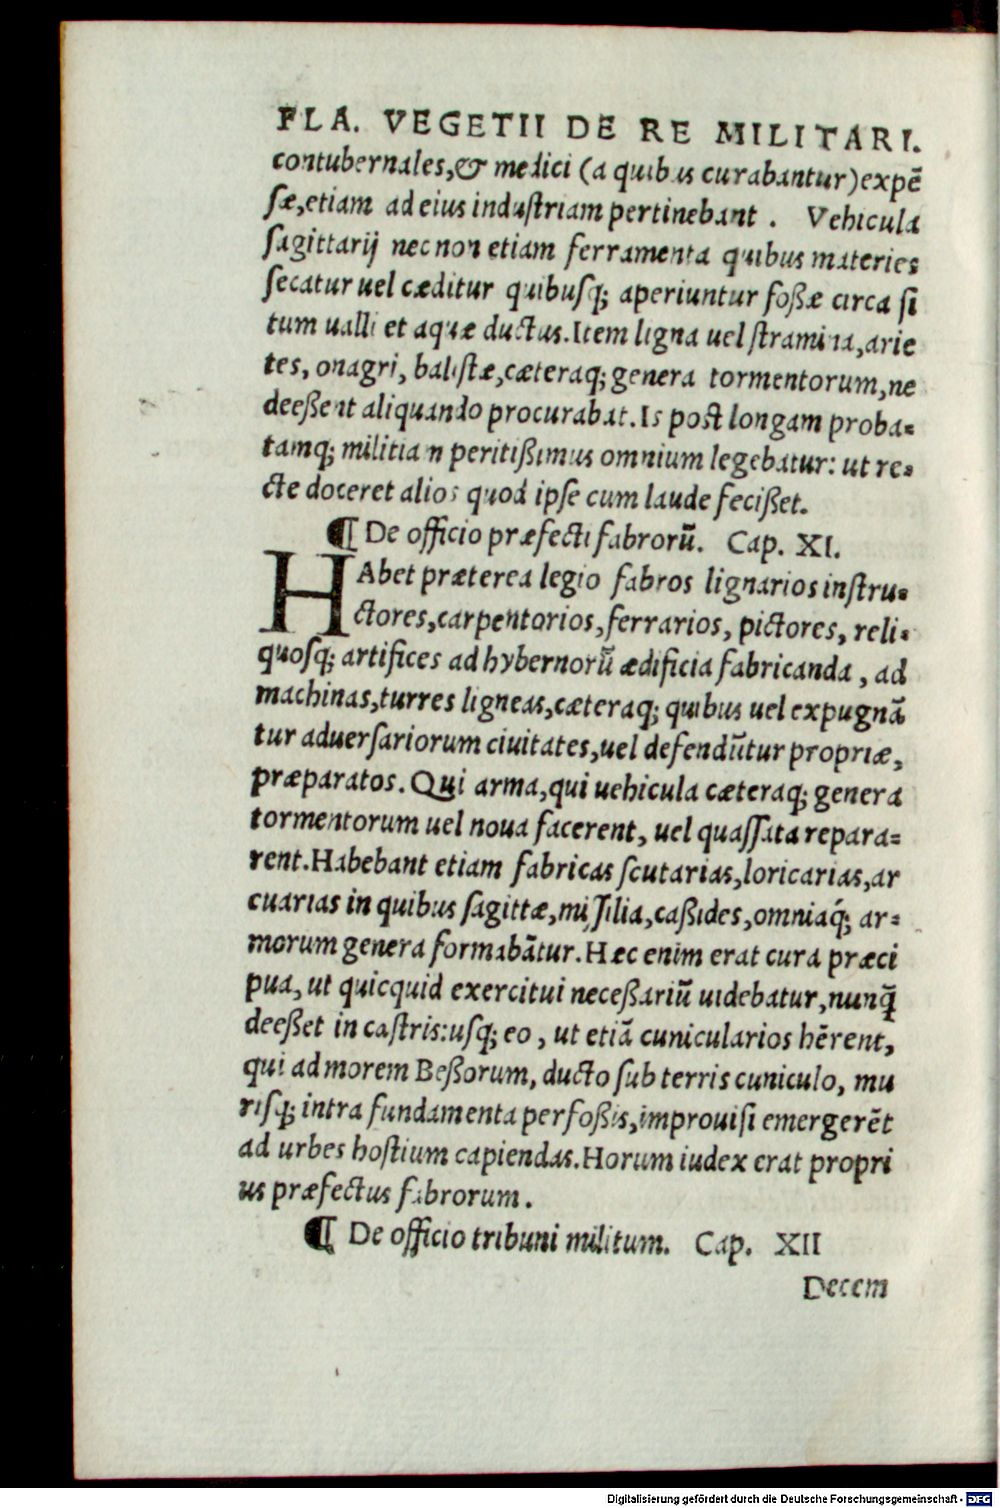 FLA. VEGETII DE RE MILITARI.
contubernales,& medici (a quibus curabantur) expẽ
ſæ,etiam ad eius induſtriam pertinebant. Vehicula
ſagittarij nec non etiam ferramenta quibus materies
ſecatur uel cæditur quibuſq; aperiuntur foßæ circa ſi
tum ualli et aquæ ductus.Item ligna uel ſtramina,arie
tes, onagri, baliſtæ,cæteraq; genera tormentorum,ne
deeßent aliquando procurabat.Is poſt longam proba-
tamq; militiam peritißimus omnium legebatur: ut re-
cte doceret alios quod ipſe cum laude fecißet.
¶ De officio præfecti fabrorũ. Cap. XI.
HAbet præterea legio fabros lignarios inſtru-
ctores,carpentorios,ferrarios, pictores, reli-
quoſq; artifices ad hybernorũ ædificia fabricanda, ad
machinas,turres ligneas,cæteraq; quibus uel expugnã
tur aduerſariorum ciuitates,uel defendũtur propriæ,
præparatos. Qui arma,qui uehicula cæteraq; genera
tormentorum uel noua facerent, uel quaſſata repara-
rent.Habebant etiam fabricas ſcutarias,loricarias,ar
cuarias in quibus ſagittæ,miſſilia,caßides,omniaq́; ar-
morum genera formabãtur.Hæc enim erat cura præci
pua, ut quicquid exercitui neceßariũ uidebatur,nunq̃
deeßet in caſtris:uſq; eo, ut etiã cunicularios hẽrent,
qui ad morem Beßorum, ducto ſub terris cuniculo, mu
riſq; intra fundamenta perfoßis,improuiſi emergerẽt
ad urbes hoſtium capiendas.Horum iudex erat propri
us præfectus fabrorum.
¶ De officio tribuni militum. Cap. XII
Decem
Digitalisierung gefördert durch die Deutsche Forschungsgemeinschaft - DFG